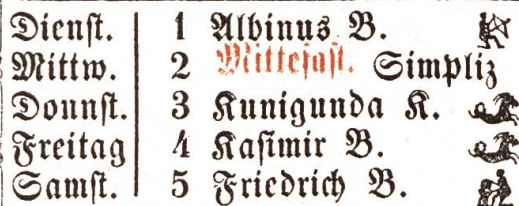 Dienſt. 1 Albinus B.
Mittw. 2 Mittefaſt. Simpliz
Donnſt. 3 Kunigunda K.
Freitag 4 Kaſimir B.
Samſt. 5 Friedrich B.